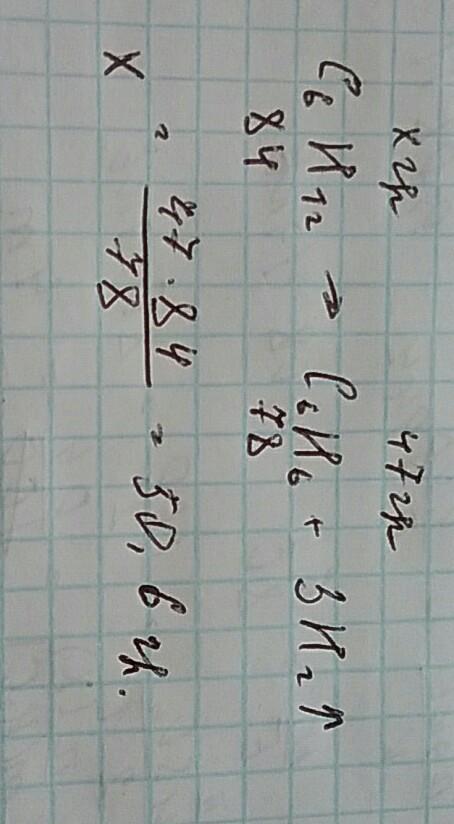 x гр 47 гр
C₆H₁₂ → C₆H₆ + 3H₂↑
84 78
x = 47 · 84 / 78 = 50,6 гр.